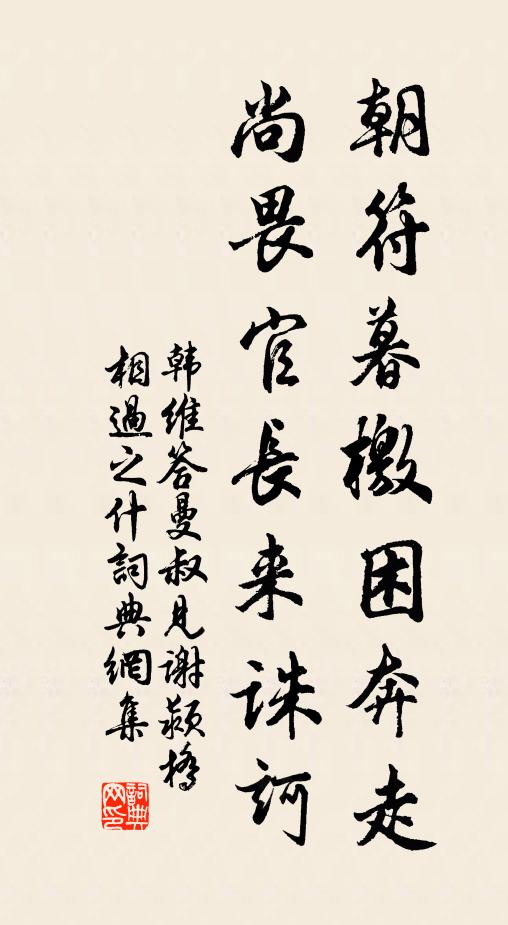 朝符暮檄困奔走
尚畏官長来誅訶
韩維答曼叔見谢颍橋
相過之什詞典網集
詞典网印